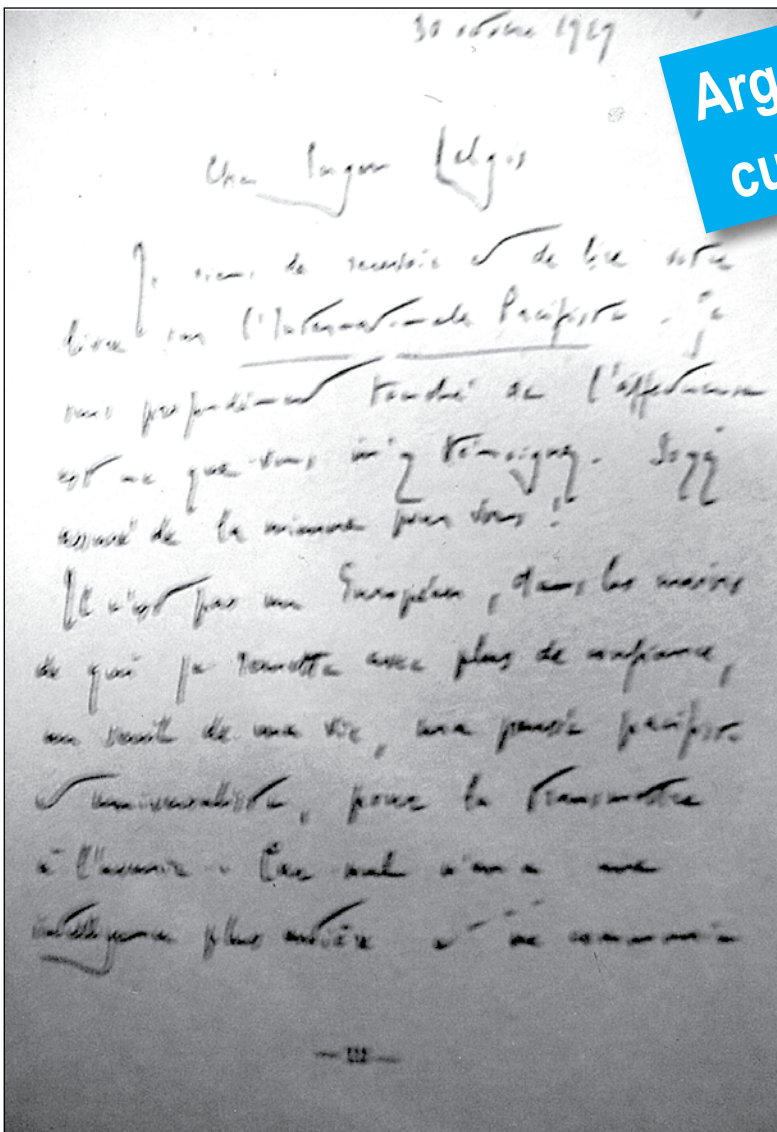 30 octobre 1929
Arg
cu
Cher Eugen Relgis
Je viens de recevoir et de lire votre
livre sur l'Internationale Pacifiste. Je
suis profondément touché de l'affectueuse
estime que vous m'y témoignez. Soyez
assuré de la mienne pour vous !
Il n'est pas un Européen, dans les mains
de qui je remette avec plus de confiance,
au seuil de ma vie, ma pensée pacifiste
et universaliste, pour la transmettre
à l'avenir. Car nul n'en a une
intelligence plus entière et ne
— 112 —